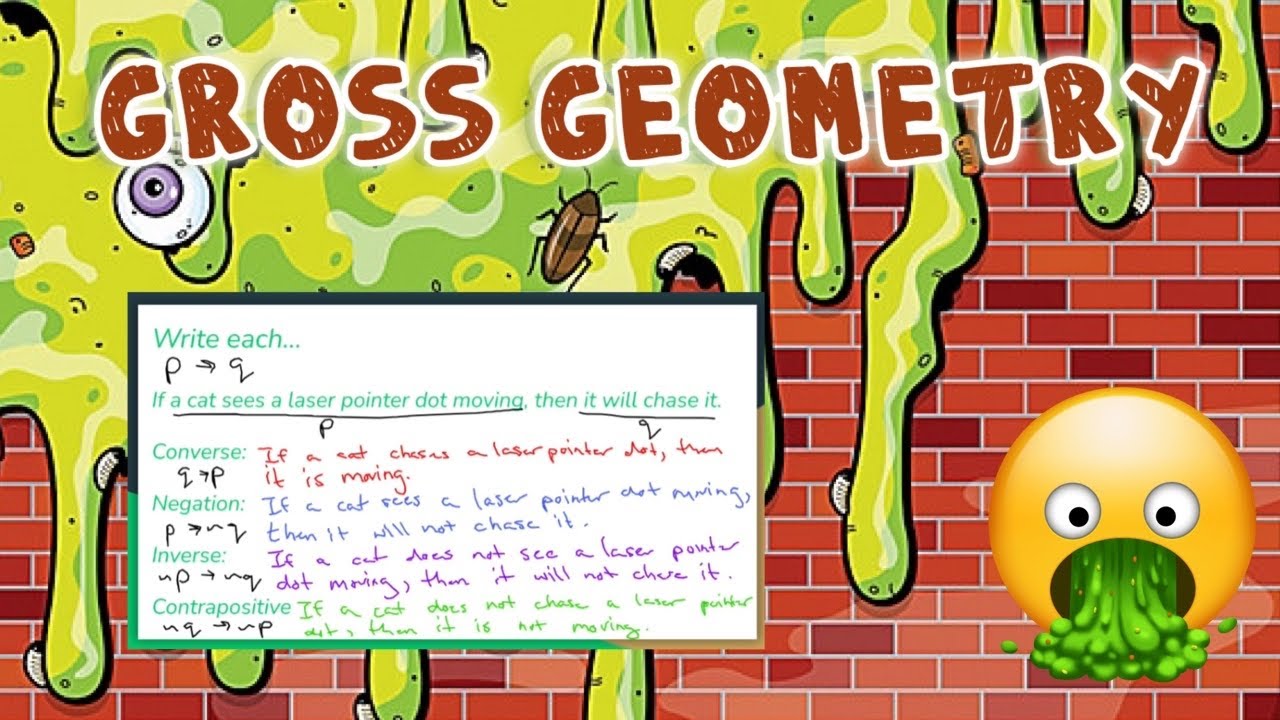 GROSS GEOMETRY
Write each...
p → q
If a cat sees a laser pointer dot moving, then it will chase it.
p q
Converse: If a cat chases a laser pointer dot, then
q→p it is moving.
Negation: If a cat sees a laser pointer dot moving,
p → ~q then it will not chase it.
Inverse: If a cat does not see a laser pointer
~p → ~q dot moving, then it will not chase it.
Contrapositive If a cat does not chase a laser pointer
~q → ~p dot, then it is not moving.